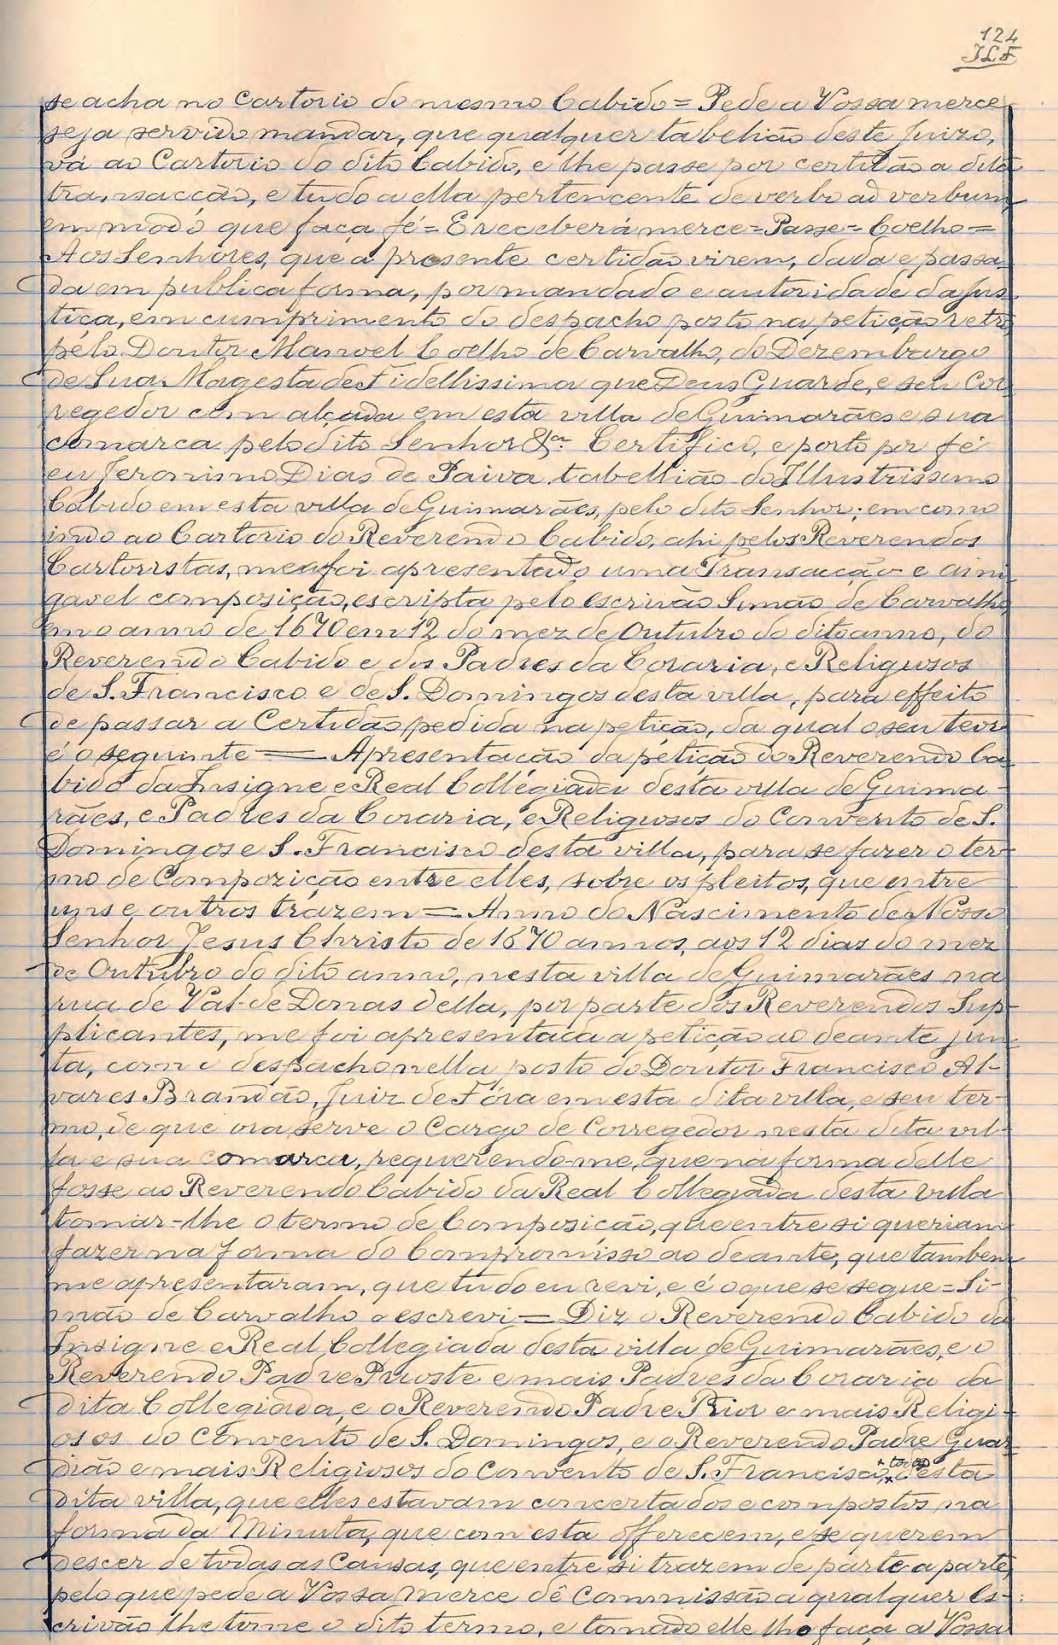 124
JLF
se acha no Cartorio do mesmo Cabido = Pede a Vossa merce
seja servido mandar, que qualquer tabelião deste Juizo,
vá ao Cartorio do dito Cabido, e lhe passe por certidão a dita
transacção, e tudo a ella pertencente de verbo ad verbum
em modo que faça fé = E receberá merce = Passe = Coelho =
Aos Senhores, que a presente certidão virem, dada e passa-
da em publica forma, por mandado e autoridade da Jus-
tiça, em cumprimento do despacho posto na petição retro
pelo Doutor Manoel Coelho de Carvalho, do Dezembargo
de Sua Magestade Fidellissima que Deus Guarde, e seu Cor-
regedor com alçada em esta villa de Guimarães e sua
comarca pelo dito Senhor &ª Certifico, e porto por fé
eu Jeronimo Dias de Paiva tabellião do Illustrissimo
Cabido em esta villa de Guimarães, pelo dito Senhor; em como
indo ao Cartorio do Reverendo Cabido, ahi pelos Reverendos
Cartoristas, me foi apresentado uma Transacção e ami-
gavel composição, escripta pelo escrivão Simão de Carvalho
no anno de 1670 em 12 do mez de Outubro do dito anno, do
Reverendo Cabido e dos Padres da Coraria, e Religiosos
de S. Francisco e de S. Domingos desta villa, para effeito
de passar a Certidão pedida na petição, da qual o seu teor
é o seguinte = Apresentacão da petição do Reverendo Ca-
bido da Insigne e Real Collégiada desta villa de Guima-
rães, e Padres da Coraria, e Religiosos do Convento de S.
Domingos e S. Francisco desta villa, para se fazer o ter-
mo de Composição entre elles, sobre os pleitos, que entre
uns e outros trázem = Anno do Nascimento de Nosso
Senhor Jesus Christo de 1670 annos, aos 12 dias do mez
de Outubro do dito anno, nesta villa de Guimarães na
rua de Val-de Donas della, por parte dos Reverendos Sup-
plicantes, me foi apresentada a petição ao deante jun-
ta, com o despacho nella posto do Doutor Francisco Al-
vares Brandão, Juiz de Fóra em esta dita villa, e seu ter-
mo, de que ora serve o Cargo de Corregedor nesta dita vil-
la e sua comarca, requerendo-me, que na forma delle
fosse ao Reverendo Cabido da Real Collegiada desta villa
tomar-lhe o termo de Composicão, que entre si queriam
fazer na forma do Compromisso ao deante, que tambem
me apresentaram, que tudo eu revi, e é o que se segue = Si-
mão de Carvalho o escrevi = Diz o Reverendo Cabido da
Insigne e Real Collegiada desta villa de Guimarães, e o
Reverendo Padre Prioste e mais Padres da Coraria da
dita Collegiada, e o Reverendo Padre Prior e mais Religi-
osos do Convento de S. Domingos, e o Reverendo Padre Guar-
dião e mais Religiosos do Convento de S. Francisco, todos desta
dita villa, que elles estavam concertados e compostos na
forma da Minuta, que com esta offerecem, e se querem
descer de todas as Causas, que entre si trazem de parte a parte
pelo que pede a Vossa merce dê Commissão a qualquer Es-
crivão lhe tome o dito termo, e tomado elle lho faça a Vossa